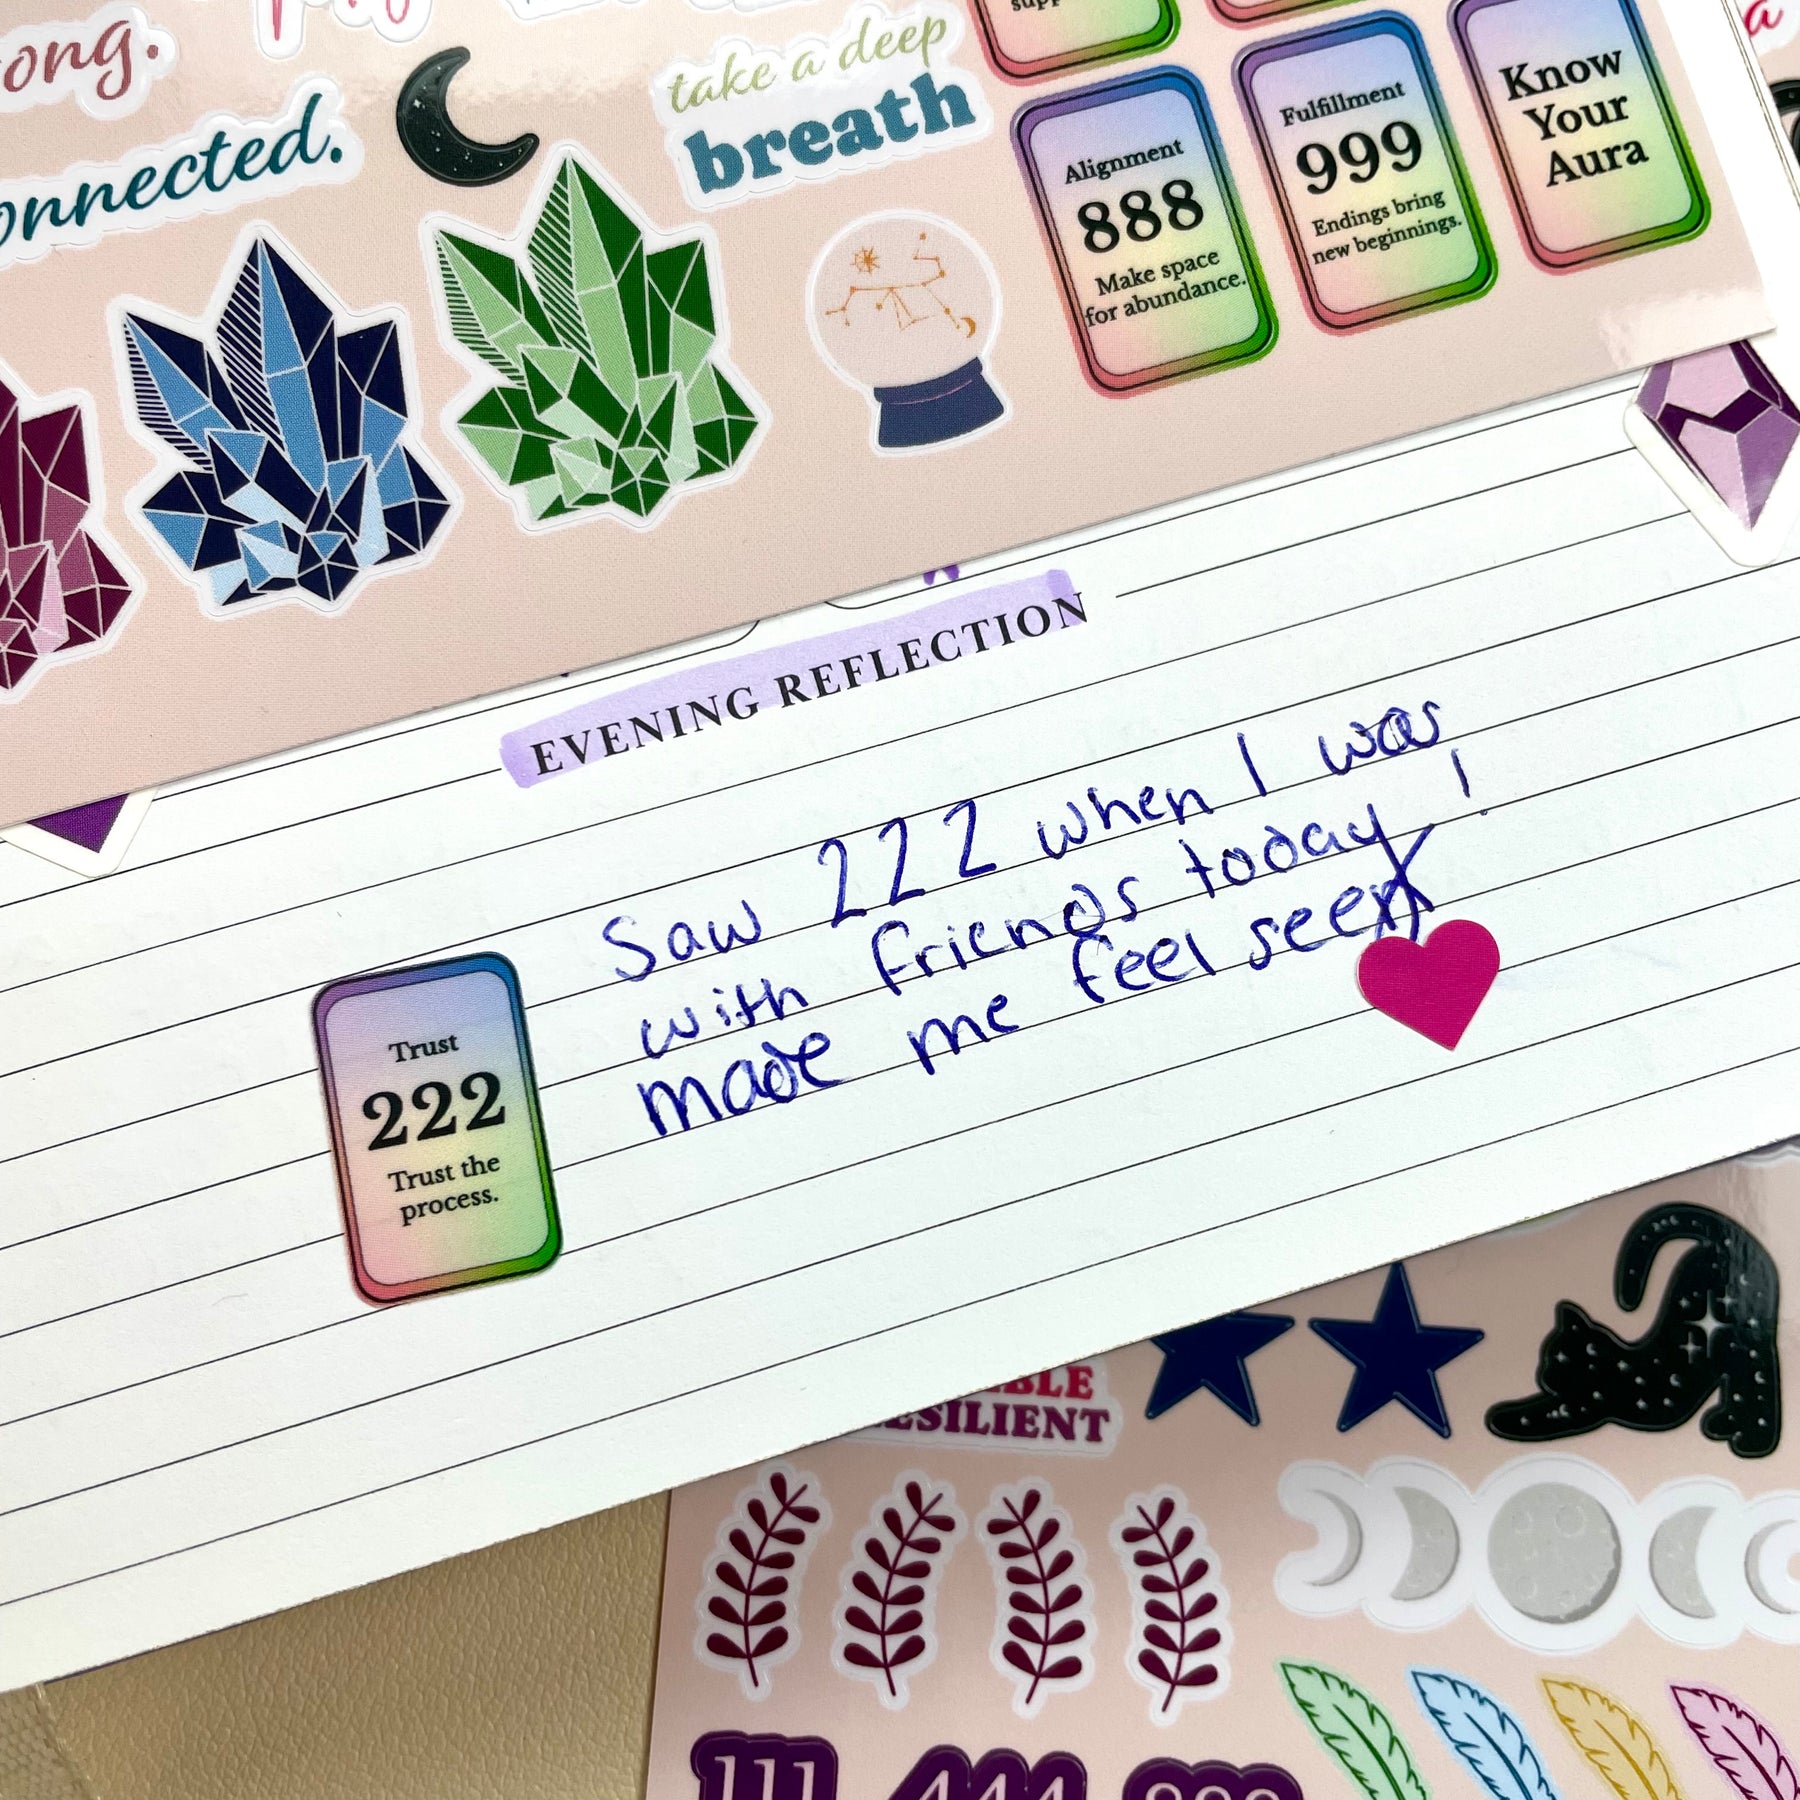 ong.
onnected.
take a deep
breath
Alignment
888
Make space
for abundance.
Fulfillment
999
Endings bring
new beginnings.
Know
Your
Aura
EVENING REFLECTION
Saw 222 when I was
with friends today!
made me feel seen
Trust
222
Trust the
process.
BLE
ESILIENT
111 444